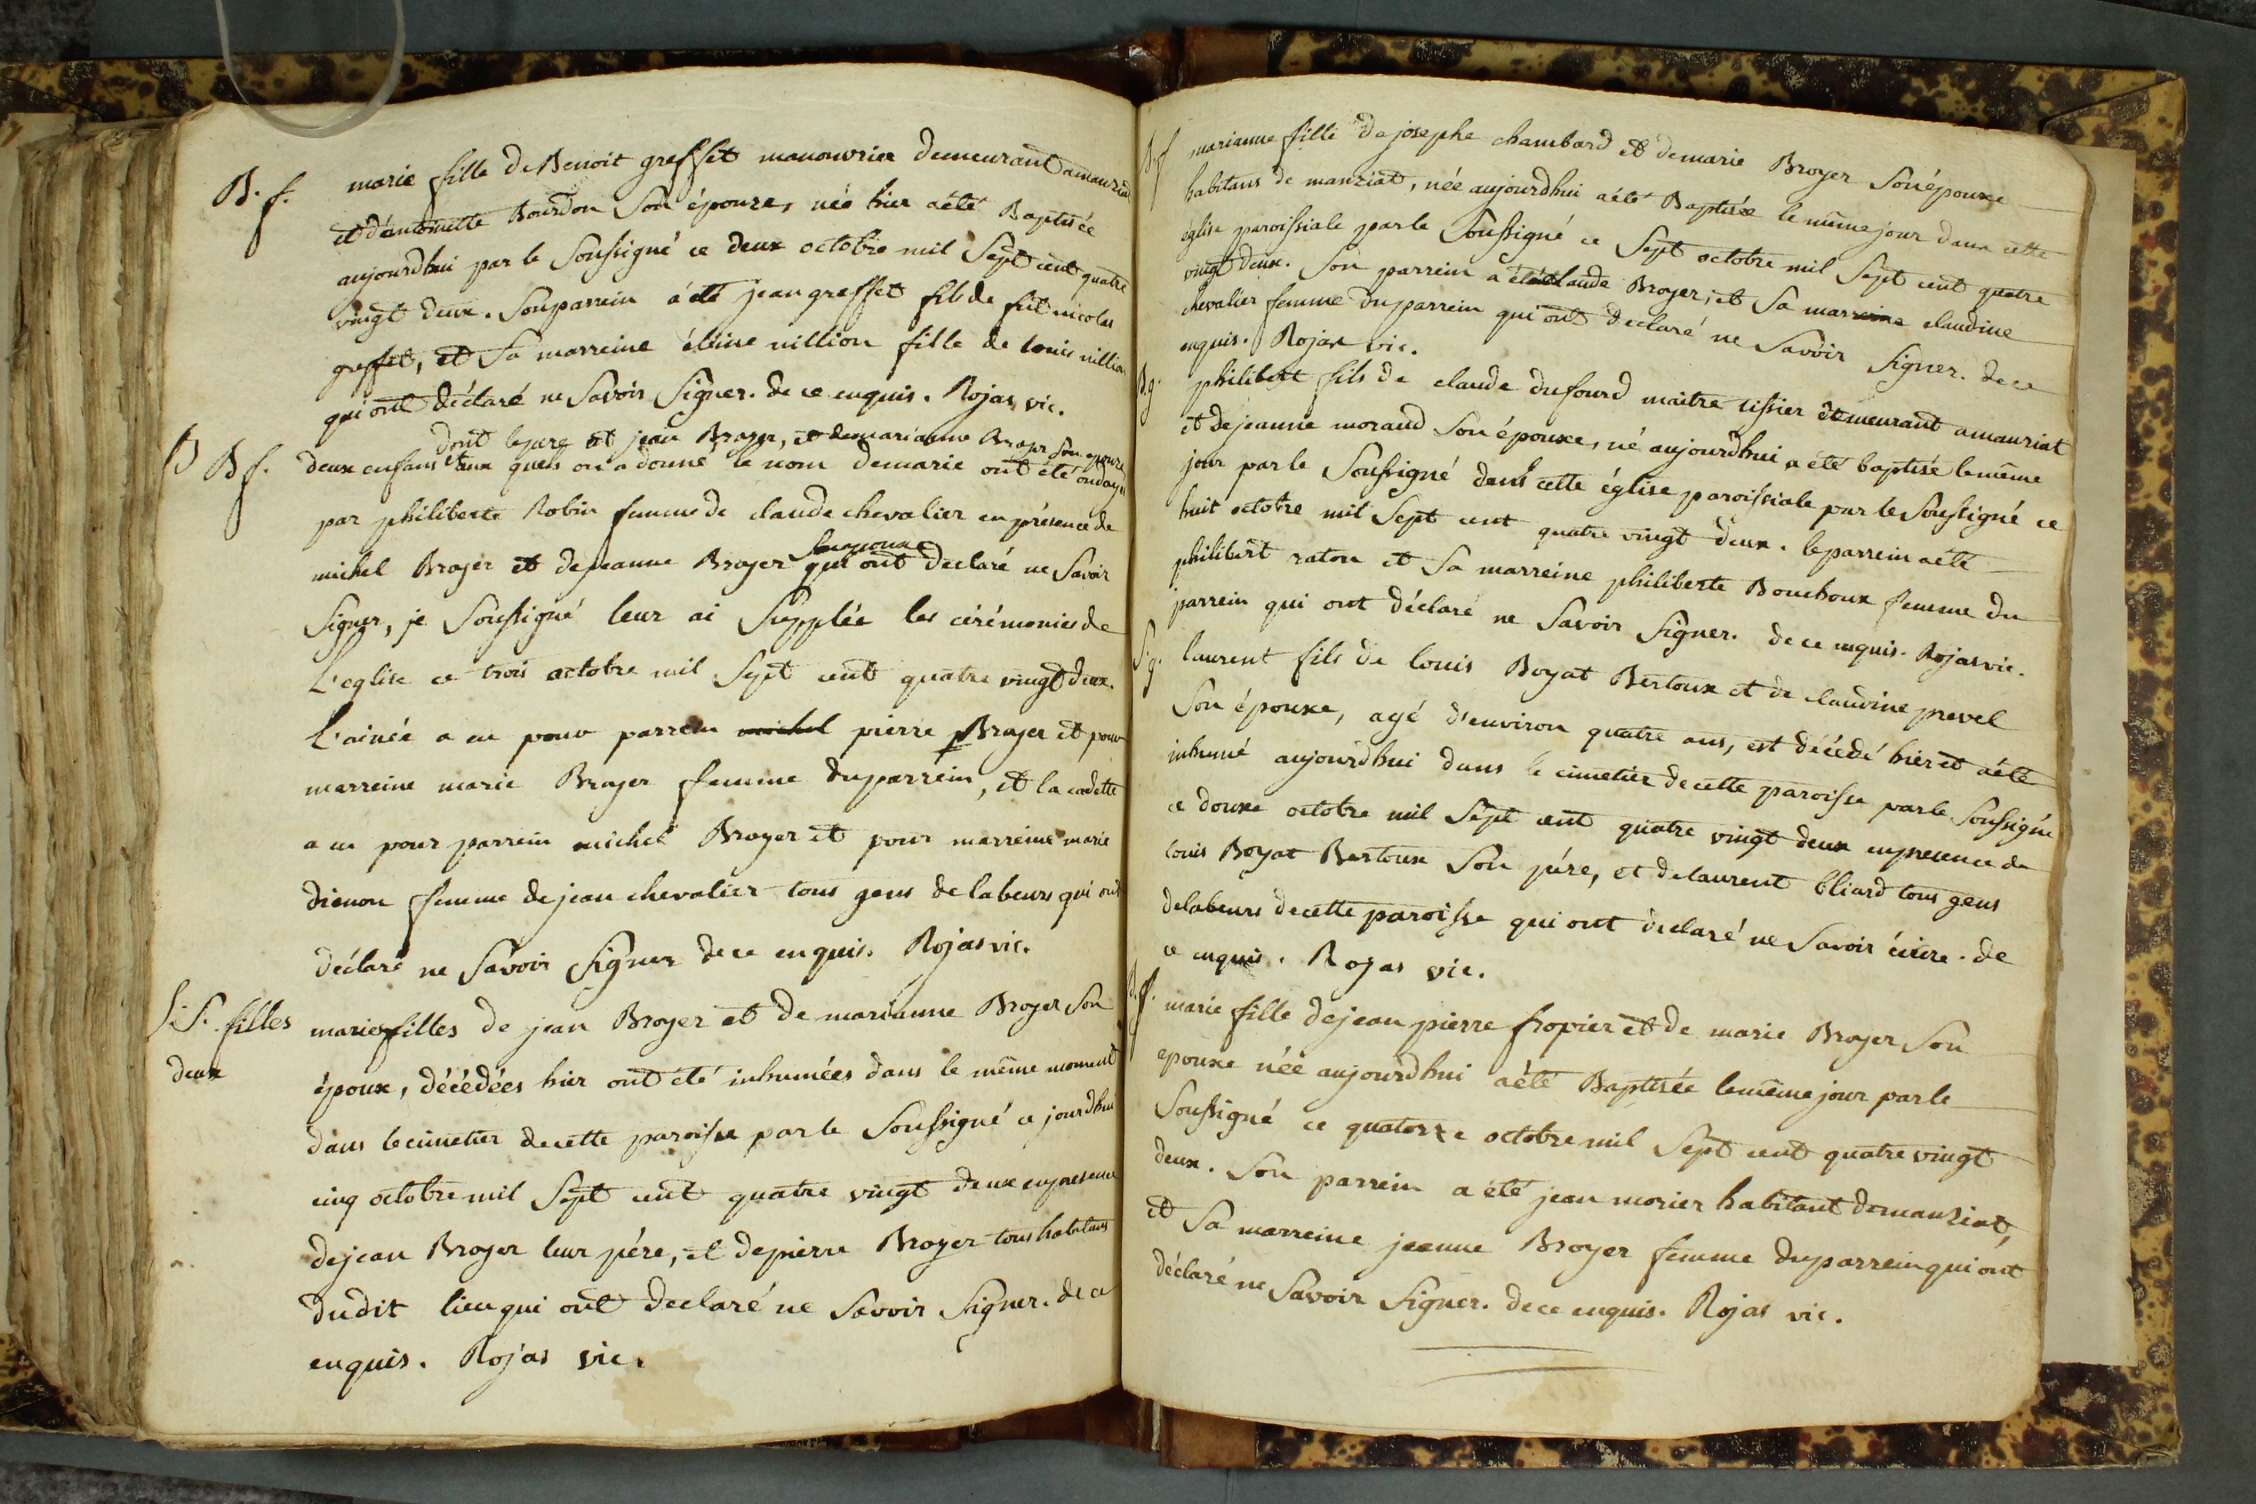 B. f. marie fille de Benoit greffet manouvrier demeurant a manziat
et d'antoinette Bourdon son épouze, née hier a été Baptisée
aujourdhui par le soussigné ce deux octobre mil sept cent quatre
vingt deux. son parrein a été jean greffet fils de feu nicolas
greffet, et sa marreine éléine nillion fille de louis nillion
qui ont déclaré ne savoir signer. de ce enquis. Rojas vic.
dont le pere est jean Broyer, et de marianne Broyer son epouze
B B f. deux enfans aux quels on a donné le nom de marie ont été ondoyés
par philiberte Robin femme de claude chevalier en présence de
michel Broyer et de jeanne Broyer son epouze qui ont declaré ne savoir
signer, je soussigné leur ai supplée les cérémonies de
L'eglise ce trois octobre mil sept cent quatre vingt deux.
L'ainée a eu pour parrein michel pierre Broyer et pour
marreine marie Broyer femme du parrein, et la cadette
a eu pour parrein michel Broyer et pour marreine marie
dienon femme de jean chevalier tous gens de labeurs qui ont
déclaré ne savoir signer de ce enquis. Rojas vic.
S. S. filles maries filles de jean Broyer et de marianne Broyer son
deux époux, décédées hier ont été inhumées dans le même moment
dans le cimetier de cette paroisse par le soussigné ce jourdhui
cinq octobre mil sept cent quatre vingt deux en presence
de jean Broyer leur pére, et de pierre Broyer tous habitans
dudit lieu qui ont declaré ne savoir signer. de ce
enquis. Rojas vic.
B. f marianne fille de josephe chambard et de marie Broyer son épouxe
habitans de manziat, née aujourdhui a été Baptisée le même jour dans cette
église paroissiale par le soussigné ce sept octobre mil sept cent quatre
vingt deux. son parrein a été claude Broyer, et sa marreine claudine
chevalier femme du parrein qui ont declaré ne savoir signer. de ce
enquis. Rojas vic.
B. g. philibert fils de claude dufourd maitre tissier demeurant a manziat
et de jeanne morand son épouxe, né aujourdhui a été baptisé le même
jour par le soussigné dans cette église paroissiale par le soussigné ce
huit octobre mil sept cent quatre vingt deux. le parrein a été
philibert raton et sa marreine philiberte Bouchoux femme du
parrein qui ont déclaré ne savoir signer. de ce enquis. Rojas vic.
S. g. laurent fils de louis Boyat Bertoux et de claudine prevel
son épouxe, agé d'environ quatre ans, est décédé hier et a été
inhumé aujourdhui dans le cimetier de cette paroisse par le soussigné
ce douxe octobre mil sept cent quatre vingt deux en presence de
louis Boyat Bertoux son pére, et de laurent bliard tous gens
de labeurs de cette paroisse qui ont déclaré ne savoir écrire. de
ce enquis. Rojas vic.
B. f. marie fille de jean pierre fropier et de marie Broyer son
epouxe née aujourdhui a été Baptisée le même jour par le
soussigné ce quatorze octobre mil sept cent quatre vingt
deux. son parrein a été jean morier habitant de manziat,
et sa marreine jeanne Broyer femme du parrein qui ont
déclaré ne savoir signer. de ce enquis. Rojas vic.